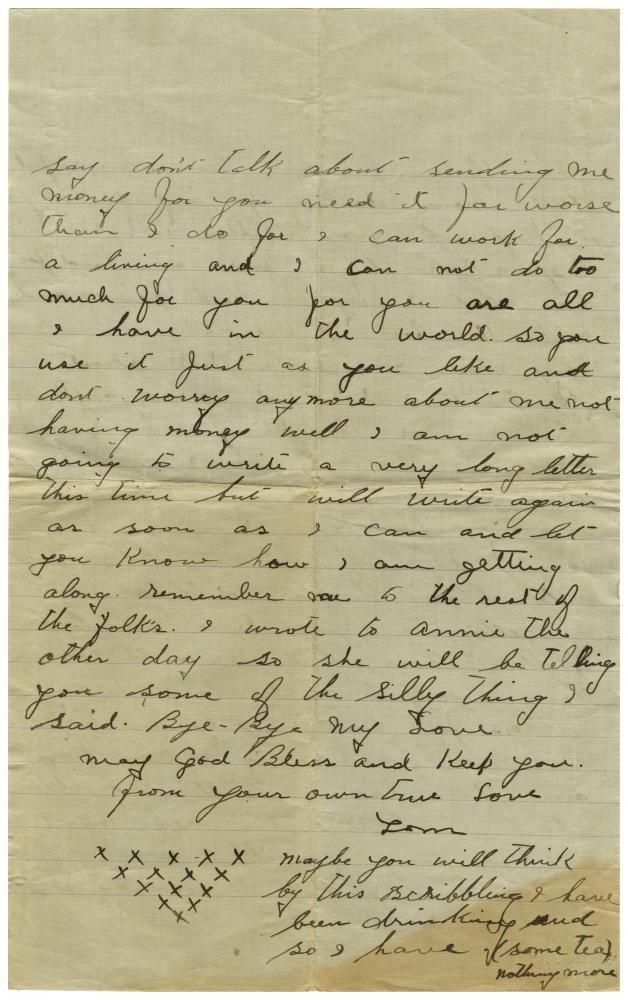 say don't talk about sending me
money for you need it far worse
than I do for I can work for
a living and I can not do too
much for you for you are all
I have in the world. so you
use it Just as you like and
dont worrey any more about me not
having money well I am not
going to write a very long letter
this time but will write again
as soon as I can and let
you Know how I am getting
along. remember me to the rest of
the folks. I wrote to annie the
other day so she will be telling
you some of the silly thing I
said. Bye-Bye My Love
may God Bless and Keep you.
from your own true Love
Tom
x x x x x maybe you will think
x x x x by this scribbling I have
x x x been drinking and
x x so I have (some tea)
x nothing more